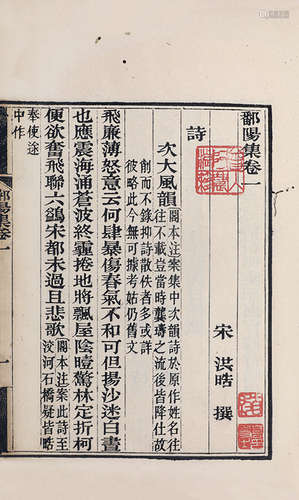 鄱陽集卷一
宋 洪皓 撰
詩
次大風韻
閣本注案集中次韻詩於原作姓名往
往不載豈當時龔璹之流後皆降仕故
削而不錄抑詩散佚者多或詳
彼略此今無可據考姑仍舊文
飛廉薄怒意云何肆暴傷春氣不和可但揚沙迷白晝
也應震海涌蒼波終霾捲地將飄屋陰曀驚林定折柯
便欲奮飛聯六鷁宋都未過且悲歌
閣本注案此詩至
汶河石橋疑皆皓
奉使途
中作
鄱陽集卷一